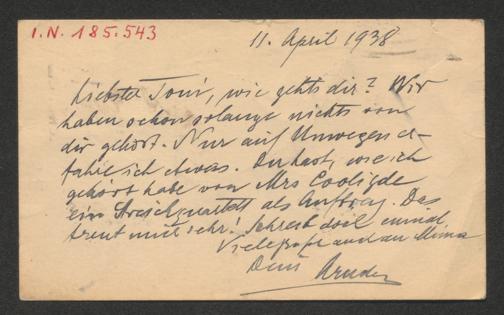 I.N. 185.543
11. April 1938
Liebster Toni, wie gehts dir? Wir
haben schon solange nichts von
dir gehört. Nur auf Umwegen er-
fahre ich etwas. Du hast, wie ich
gehört habe von Mrs Cooligde
ein Streichquartett als Auftrag. Das
freut mich sehr! Schreib doch einmal
Viele Grüße auch an Mima
Dein Arnold